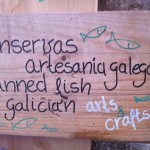 nservas
artesanía galega
nned fish
galician arts
crafts